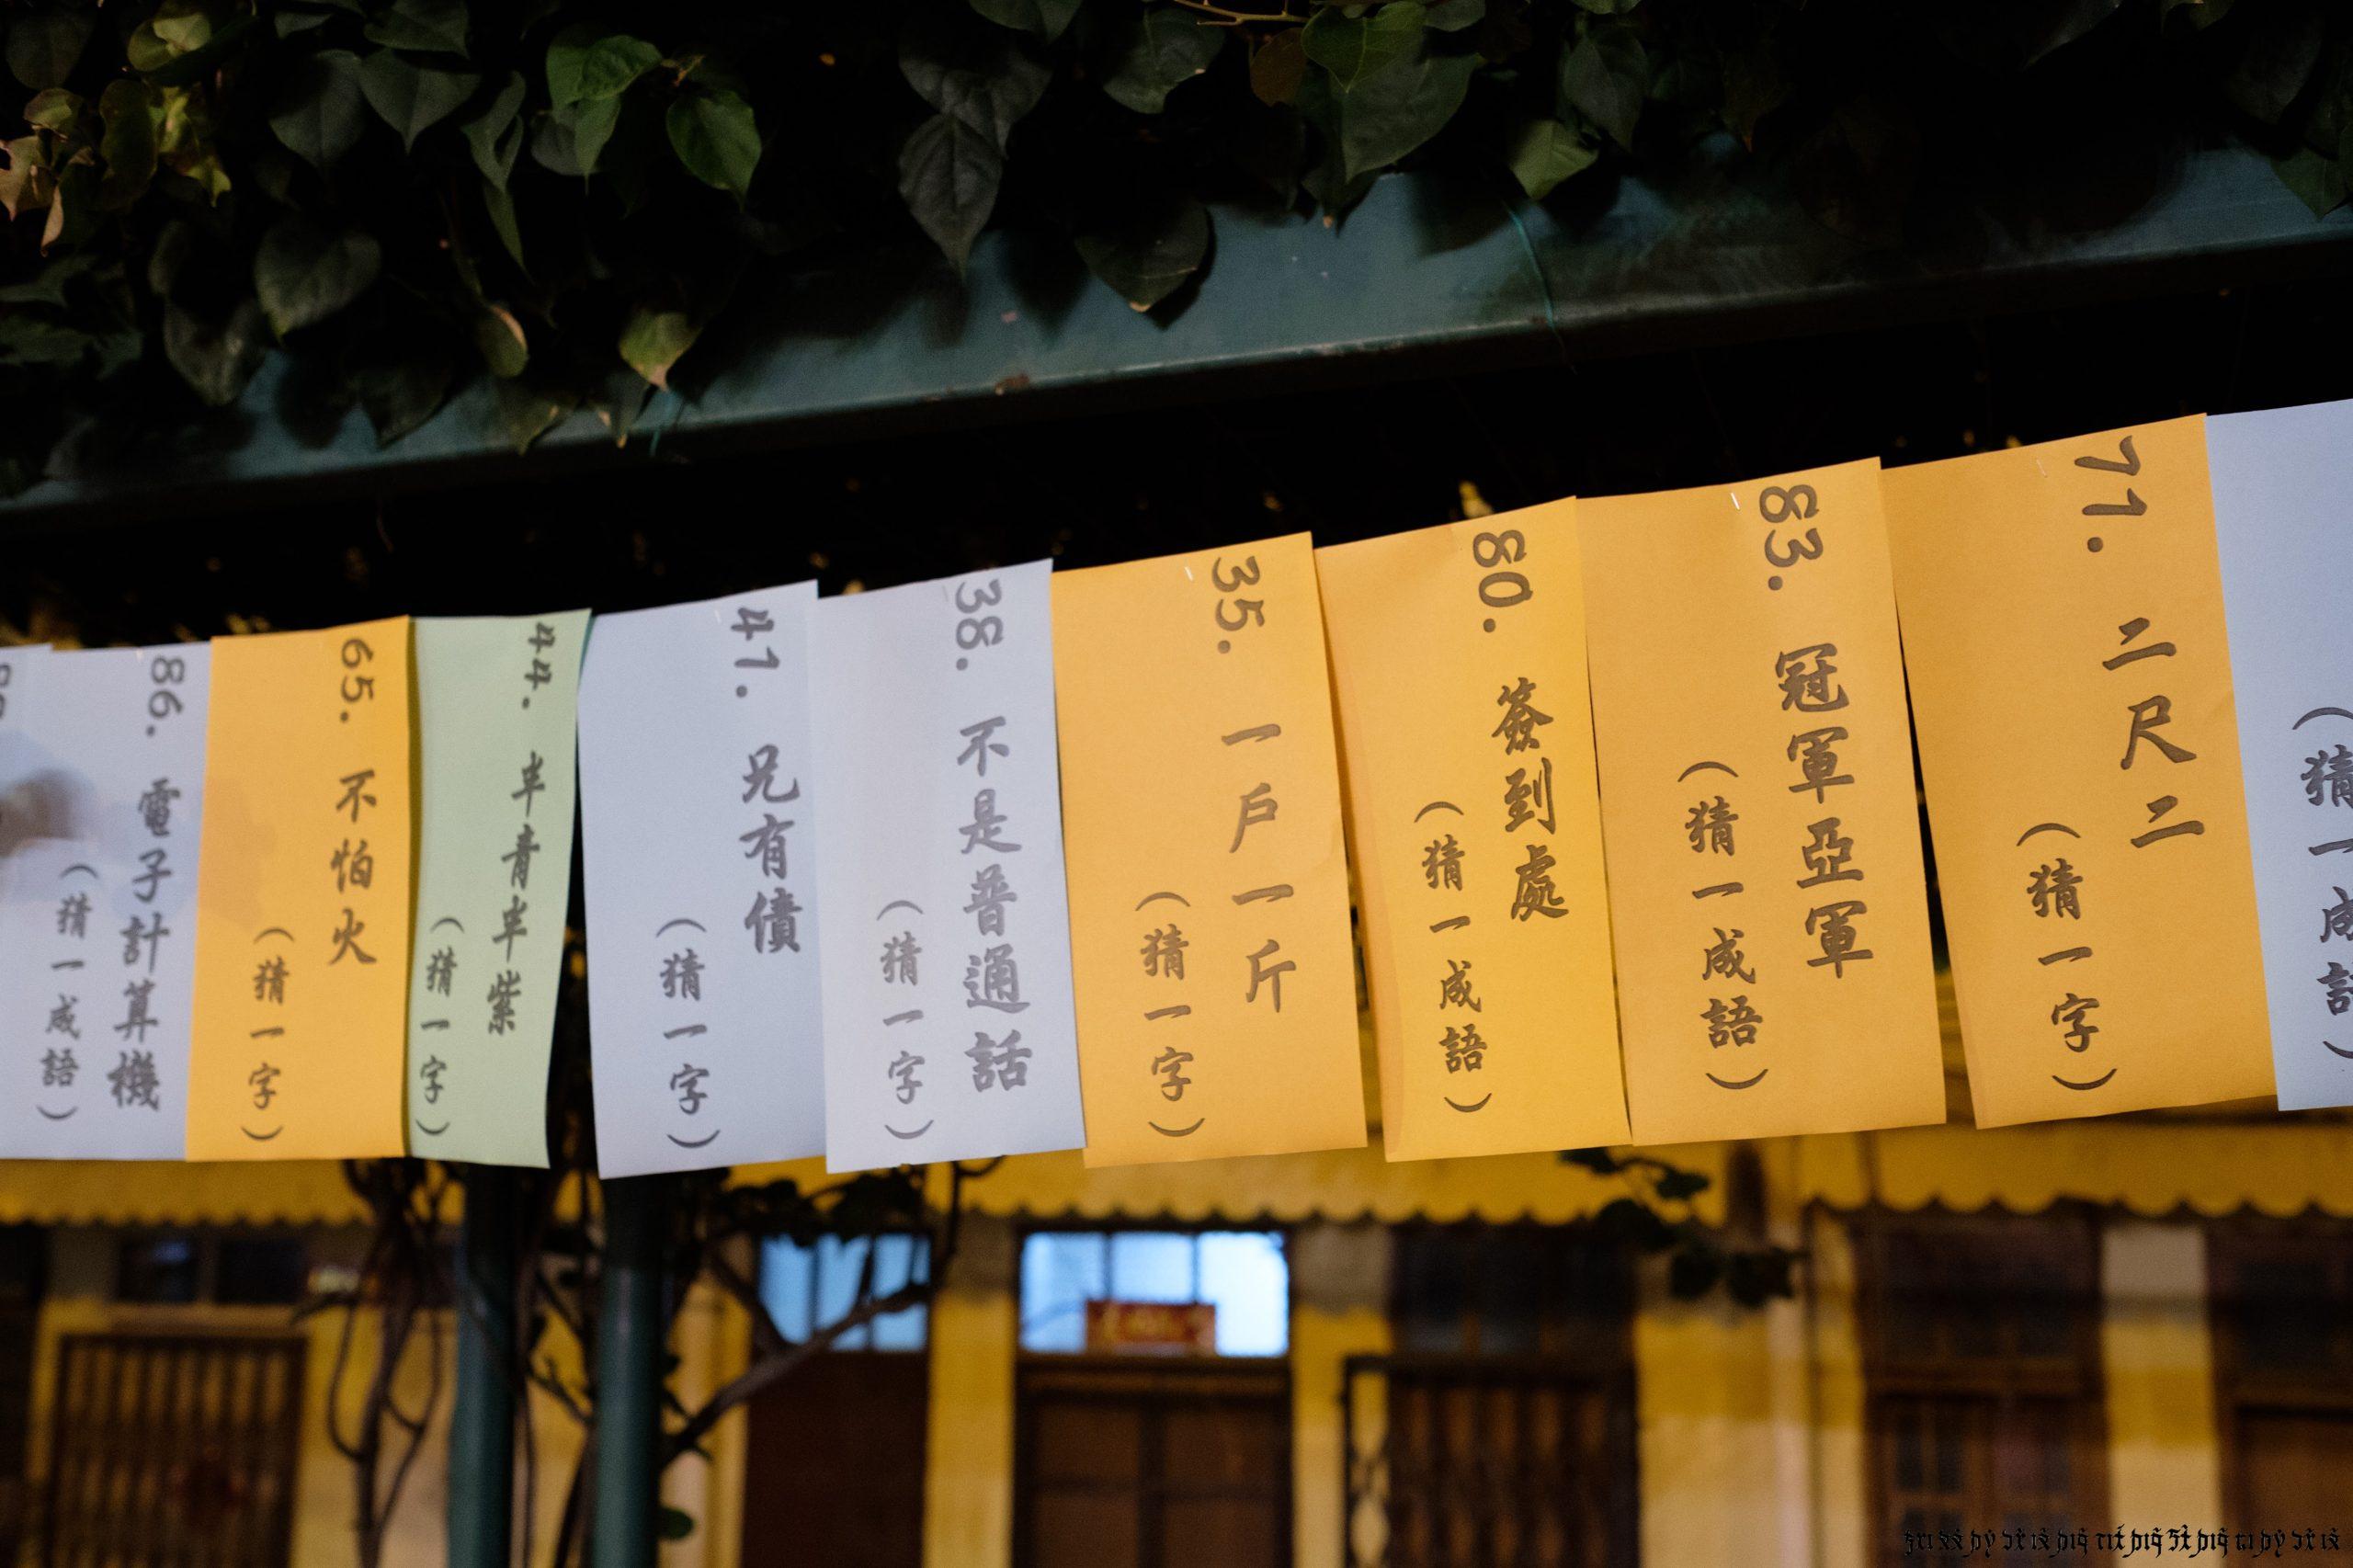 86. 電子計算機
（猜一成語）
65. 不怕火
（猜一字）
44. 半青半紫
（猜一字）
41. 兄有債
（猜一字）
38. 不是普通話
（猜一字）
35. 一戶一斤
（猜一字）
80. 簽到處
（猜一成語）
83. 冠軍亞軍
（猜一成語）
71. 二尺二
（猜一字）
（猜一成語）